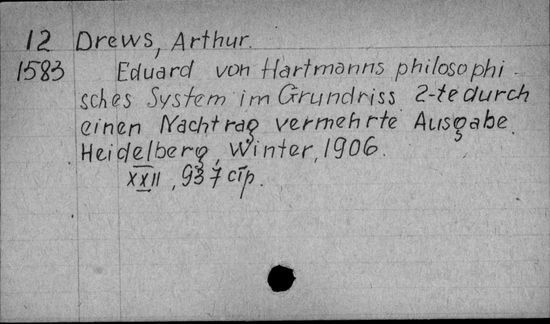 12 Drews, Arthur.
1583 Eduard von Hartmanns philosophi-
sches System im Grundriss 2-te durch
einen Nachtrag vermehrte Ausgabe.
Heidelberg, Winter, 1906.
XXII, 937 стр.